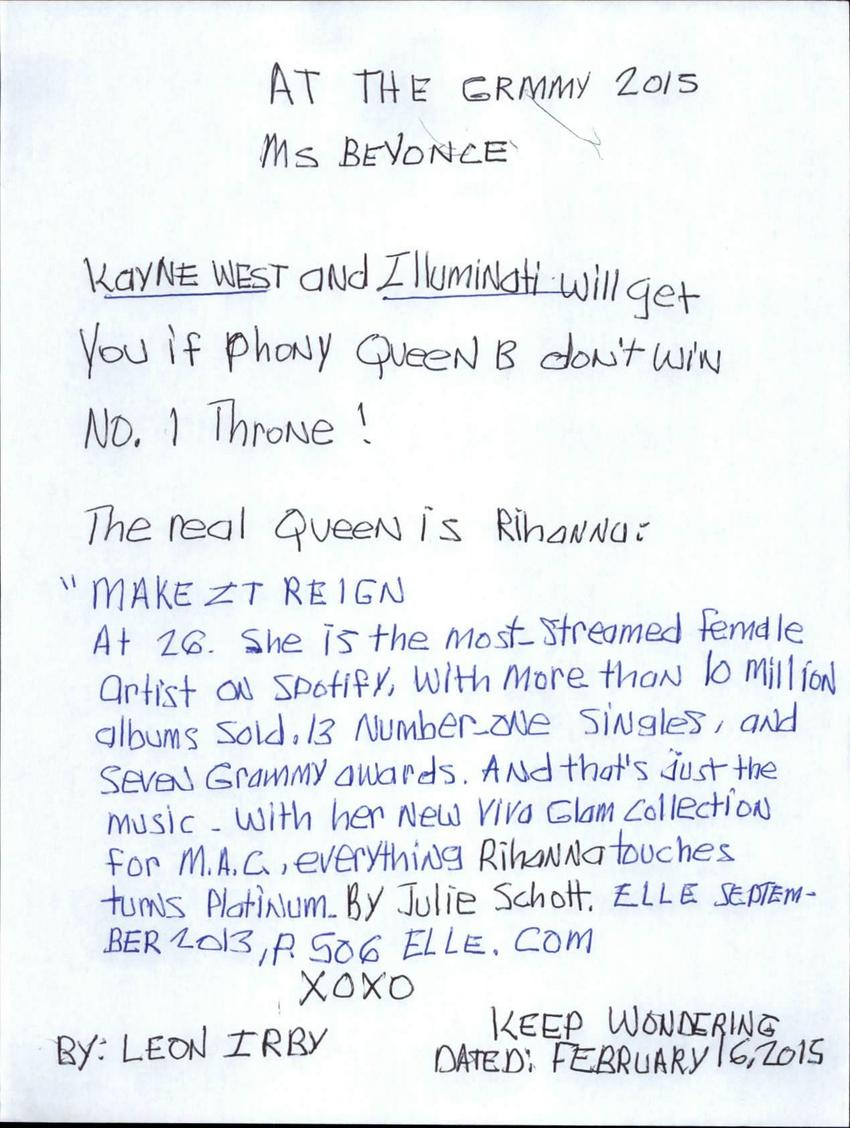 AT THE GRMMY 2015
Ms BEYONCE
KAYNE WEST and Illuminati will get
You if phony Queen B don't win
NO. 1 Throne !
The real Queen is Rihanna:
" MAKE IT REIGN
At 26. She is the most-streamed female
artist on Spotify, with more than 10 million
albums sold, 13 Number-one singles, and
seven Grammy awards. And that's just the
music - with her new Viva Glam collection
for M.A.C, everything Rihanna touches
turns platinum. By Julie Schott. ELLE SEPTEM-
BER 2013, P. 506 ELLE. COM
XOXO
KEEP WONDERING
BY: LEON IRBY
DATED: FEBRUARY 16, 2015